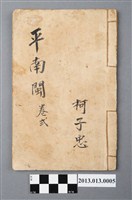 平南閩
卷弐
柯子忠
2013.013.0005